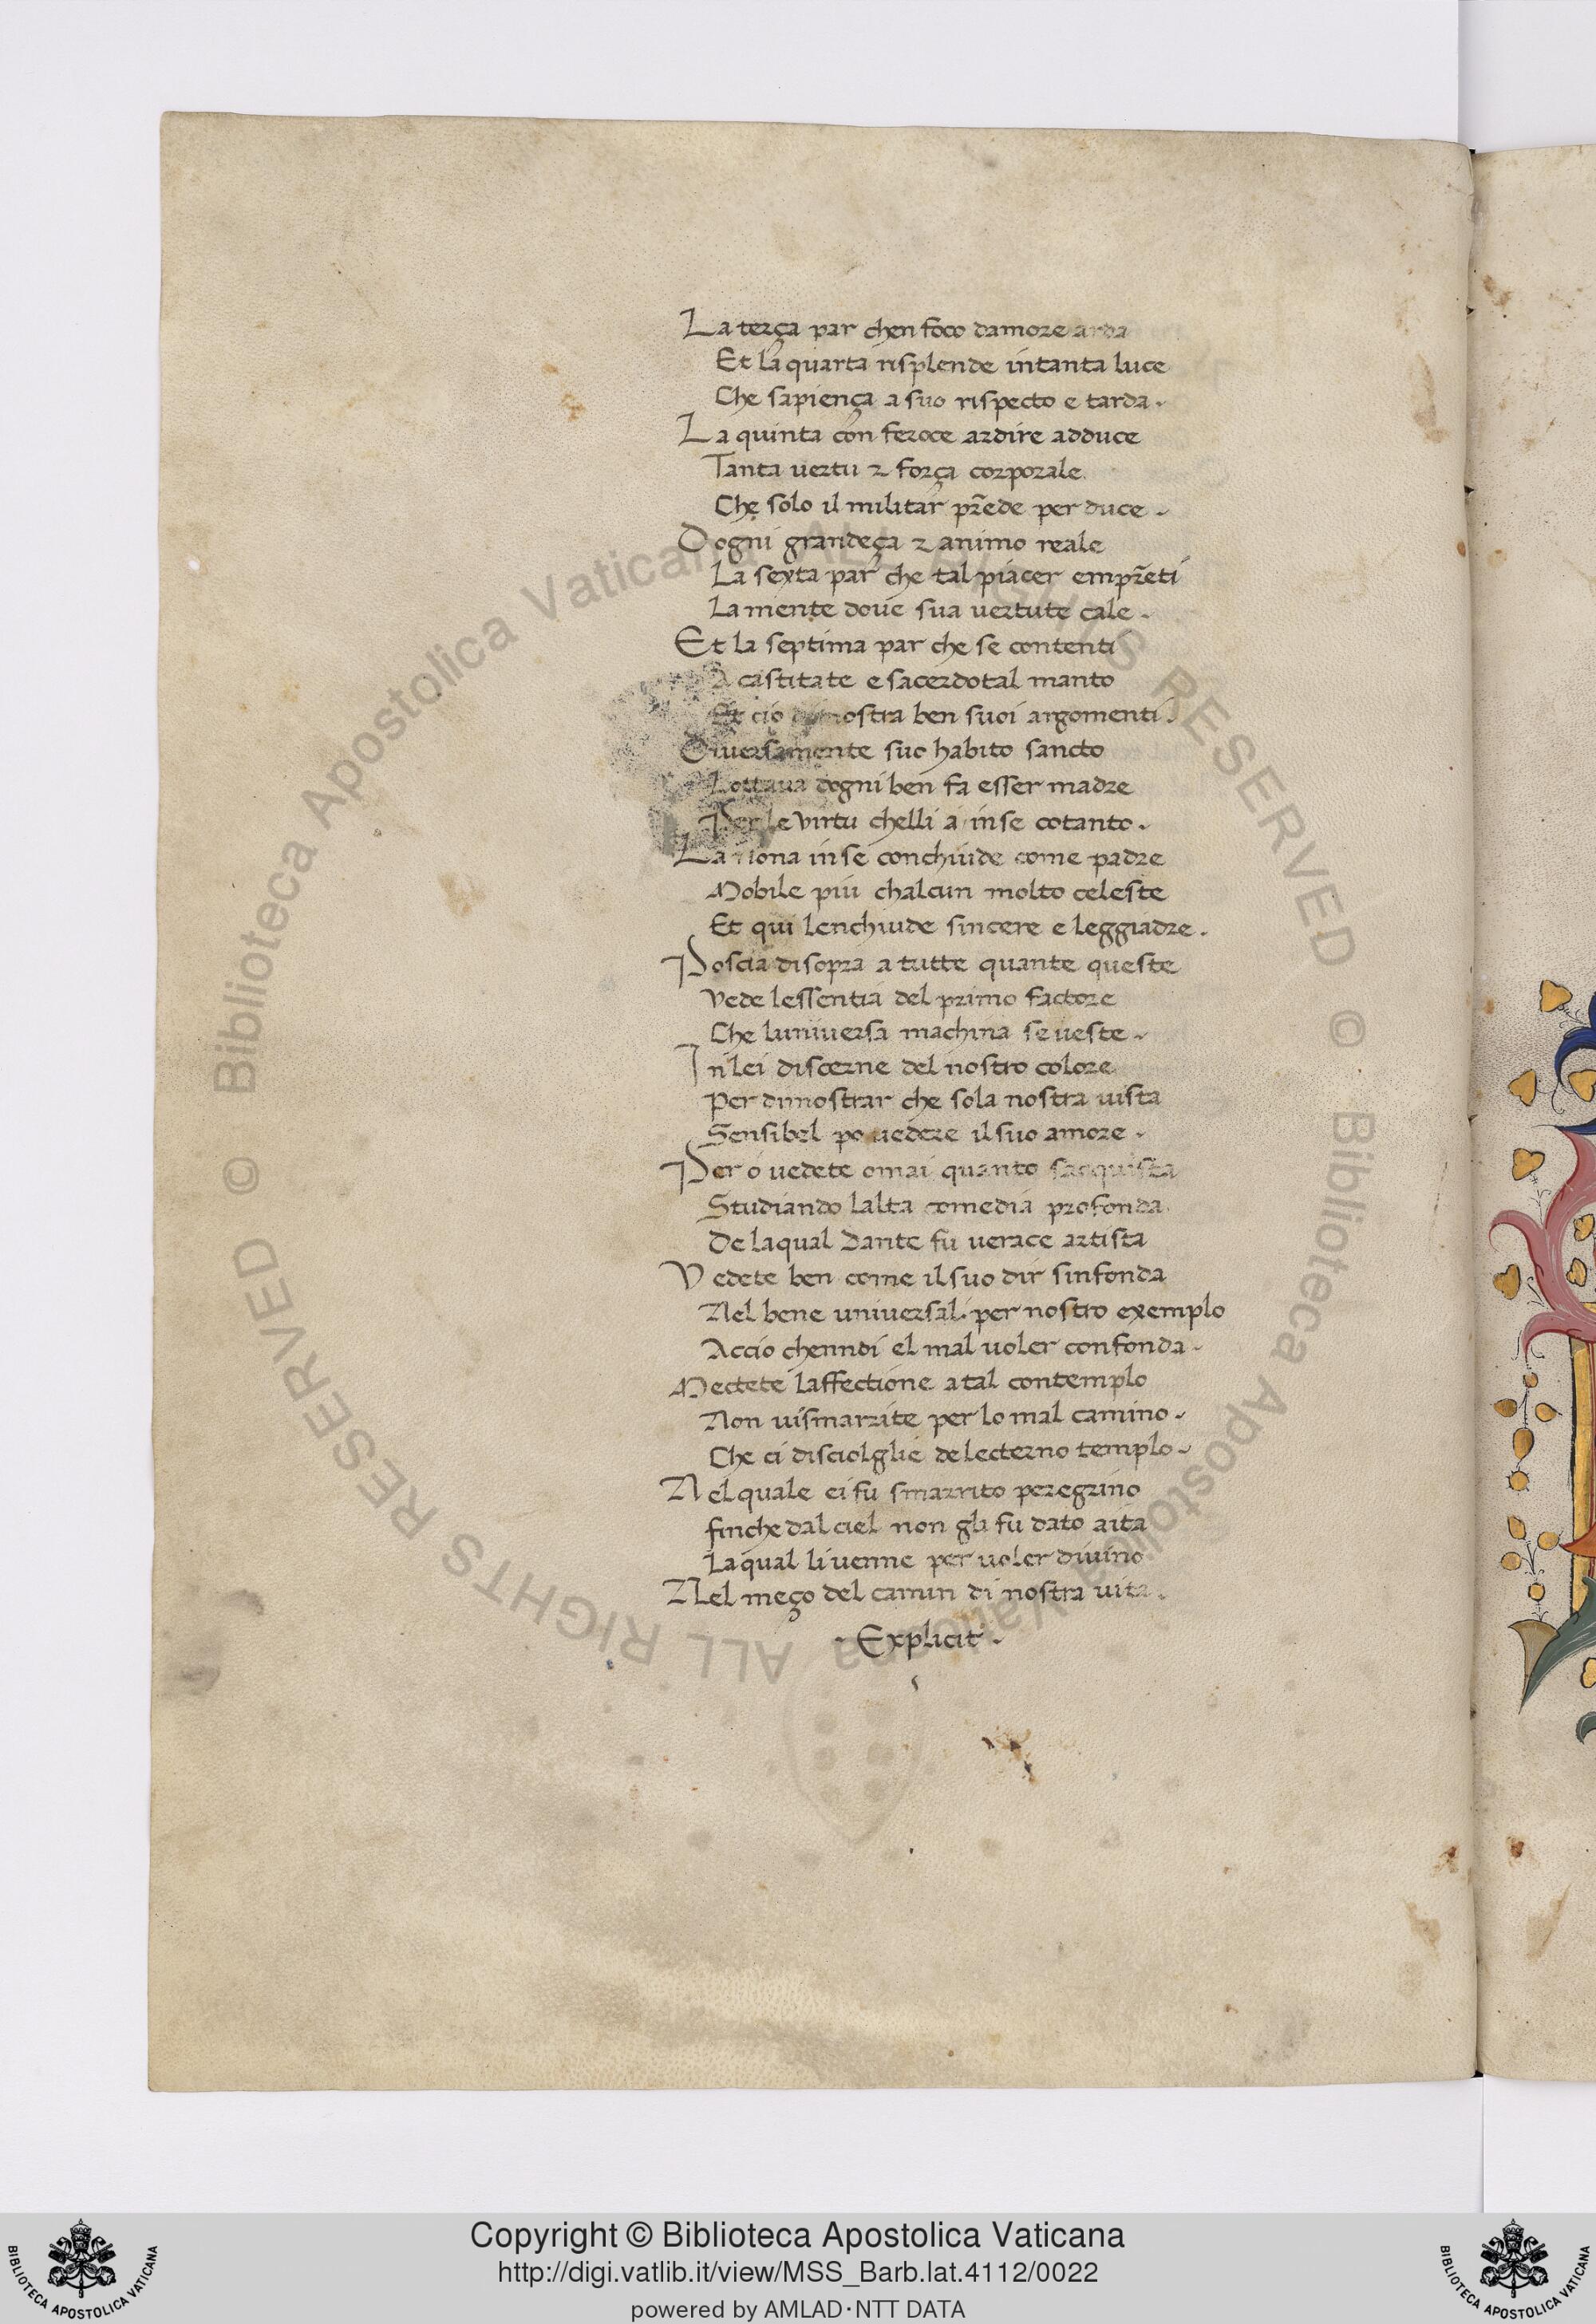 La terça par chen foco damore arda
Et la quarta risplende intanta luce
Che sapiença a suo rispecto e tarda.
La quinta con feroce ardire adduce
Tanta vertu & força corporale
Che solo il militar p̃rede per duce.
Dogni grandeça & animo reale
La sexta par che tal piacer emp̃reti
La mente dove sua vertute cale.
Et la septima par che se contenti
A castitate e sacerdotal manto
Et cio dimostra ben suoi argomenti.
Diversamente suo habito sancto
Lottava dogni ben fa esser madre
Per le virtu chelli a inse cotanto.
La nona inse conchiude come padre
Mobile piu chalcun molto celeste
Et qui lenchiude sincere e leggiadre.
Poscia disopra a tutte quante queste
Vede lessentia del primo factore
Che luniversa machina se veste.
In lei discerne del nostro colore
Per dimostrar che sola nostra vista
Sensibel po vedere il suo amore.
Per o vedete omai quanto sacquista
Studiando lalta comedia profonda
De laqual Dante fu verace artista
Vedete ben come il suo dir sinfonda
Nel bene universal. per nostro exemplo
Accio chenndi el mal voler confonda.
Mectete laffectione atal contemplo
Non vismarrite per lo mal camino.
Che ci disciolglie delecterno templo.
Nel quale ei fu smarrito peregrino
finche dal ciel non gli fu dato aita
La qual li venne per voler divino
Nel meço del camin di nostra vita.
. Explicit .
© Biblioteca Apostolica Vaticana ALL RIGHTS RESERVED © Biblioteca Apostolica Vaticana ALL RIGHTS RESERVED
Copyright © Biblioteca Apostolica Vaticana
http://digi.vatlib.it/view/MSS_Barb.lat.4112/0022
powered by AMLAD·NTT DATA
BIBLIOTECA APOSTOLICA VATICANA
BIBLIOTECA APOSTOLICA VATICANA